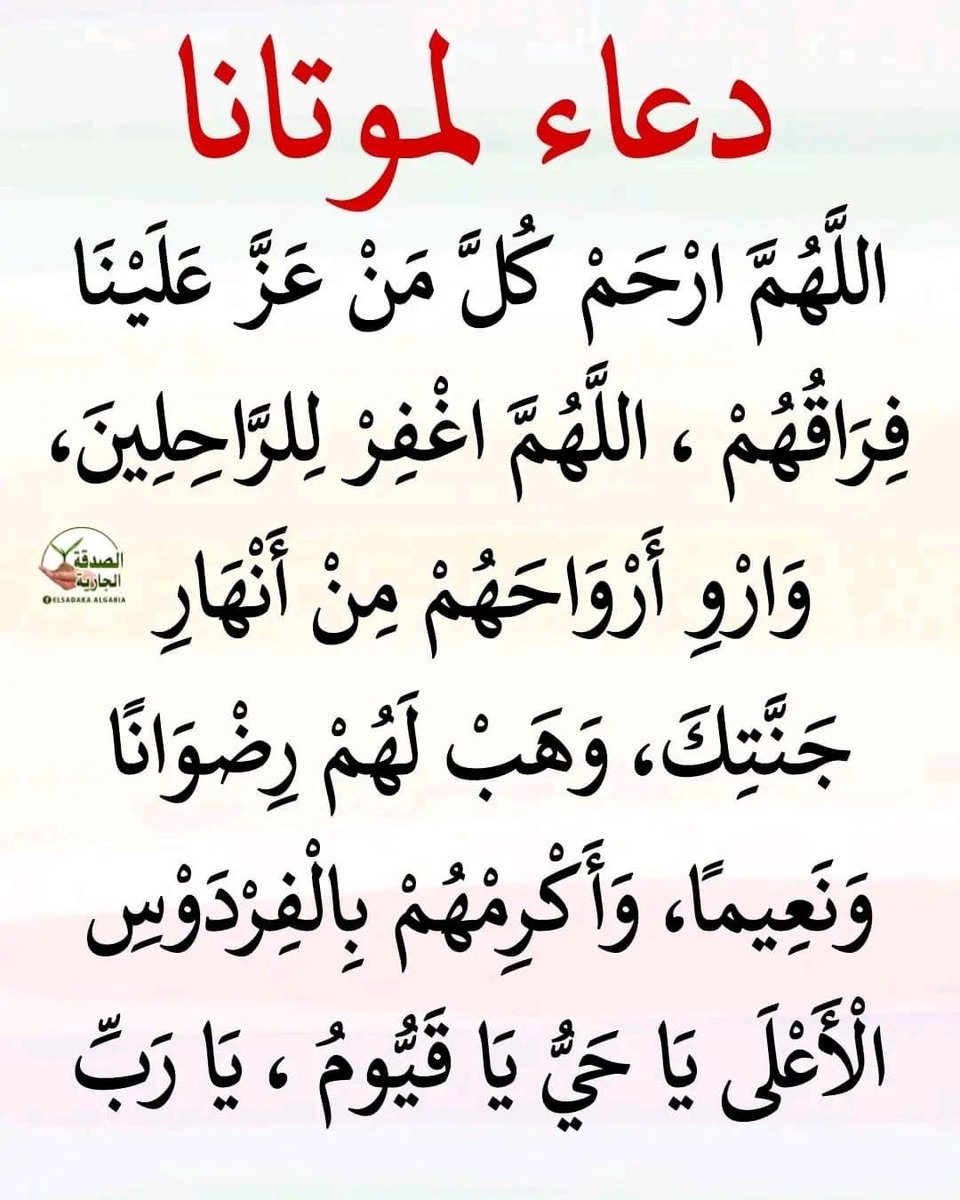 دعاء لموتانا
اللَّهُمَّ ارْحَمْ كُلَّ مَنْ عَزَّ عَلَيْنَا
فِرَاقُهُمْ ، اللَّهُمَّ اغْفِرْ لِلرَّاحِلِينَ،
الصدقة
الجارية
ELSADAKA ALGARIA
وَارْوِ أَرْوَاحَهُمْ مِنْ أَنْهَارِ
جَنَّتِكَ، وَهَبْ لَهُمْ رِضْوَانًا
وَنَعِيمًا، وَأَكْرِمْهُمْ بِالْفِرْدَوْسِ
الْأَعْلَى يَا حَيُّ يَا قَيُّومُ ، يَا رَبِّ